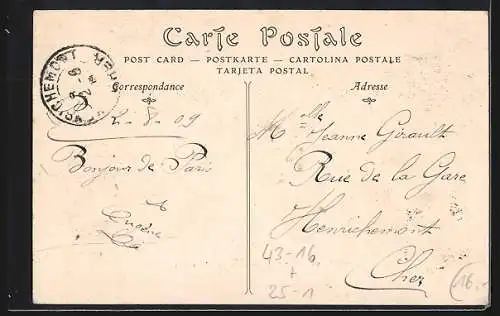 Carte Postale
POST CARD — POSTKARTE — CARTOLINA POSTALE
TARJETA POSTAL
Correspondance
Adresse
HENRICHEMONT
2-8-09
Bonjour de Paris
Eugène
Mlle Jeanne Girault
Rue de la Gare
Henrichemont
Cher
43-16.
+
25-1
(16.-